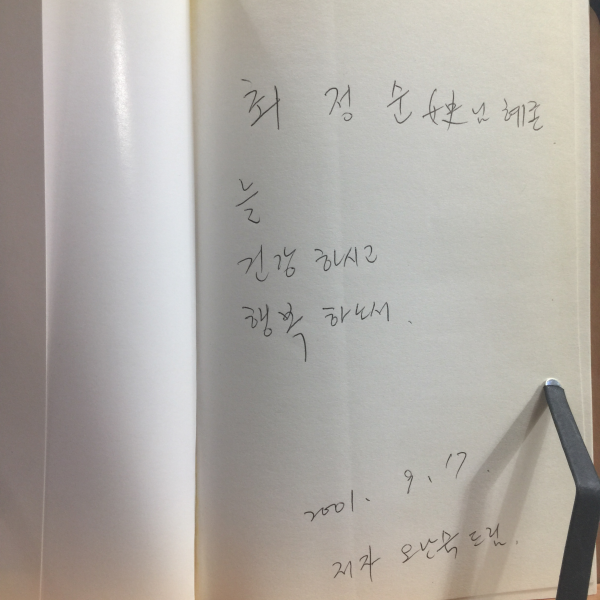 최 정 순 女史님 혜존
늘
건강 하시고
행복 하소서.
2001. 9. 17.
저자 드림.